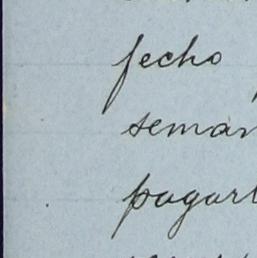 fecho
seman
pagart